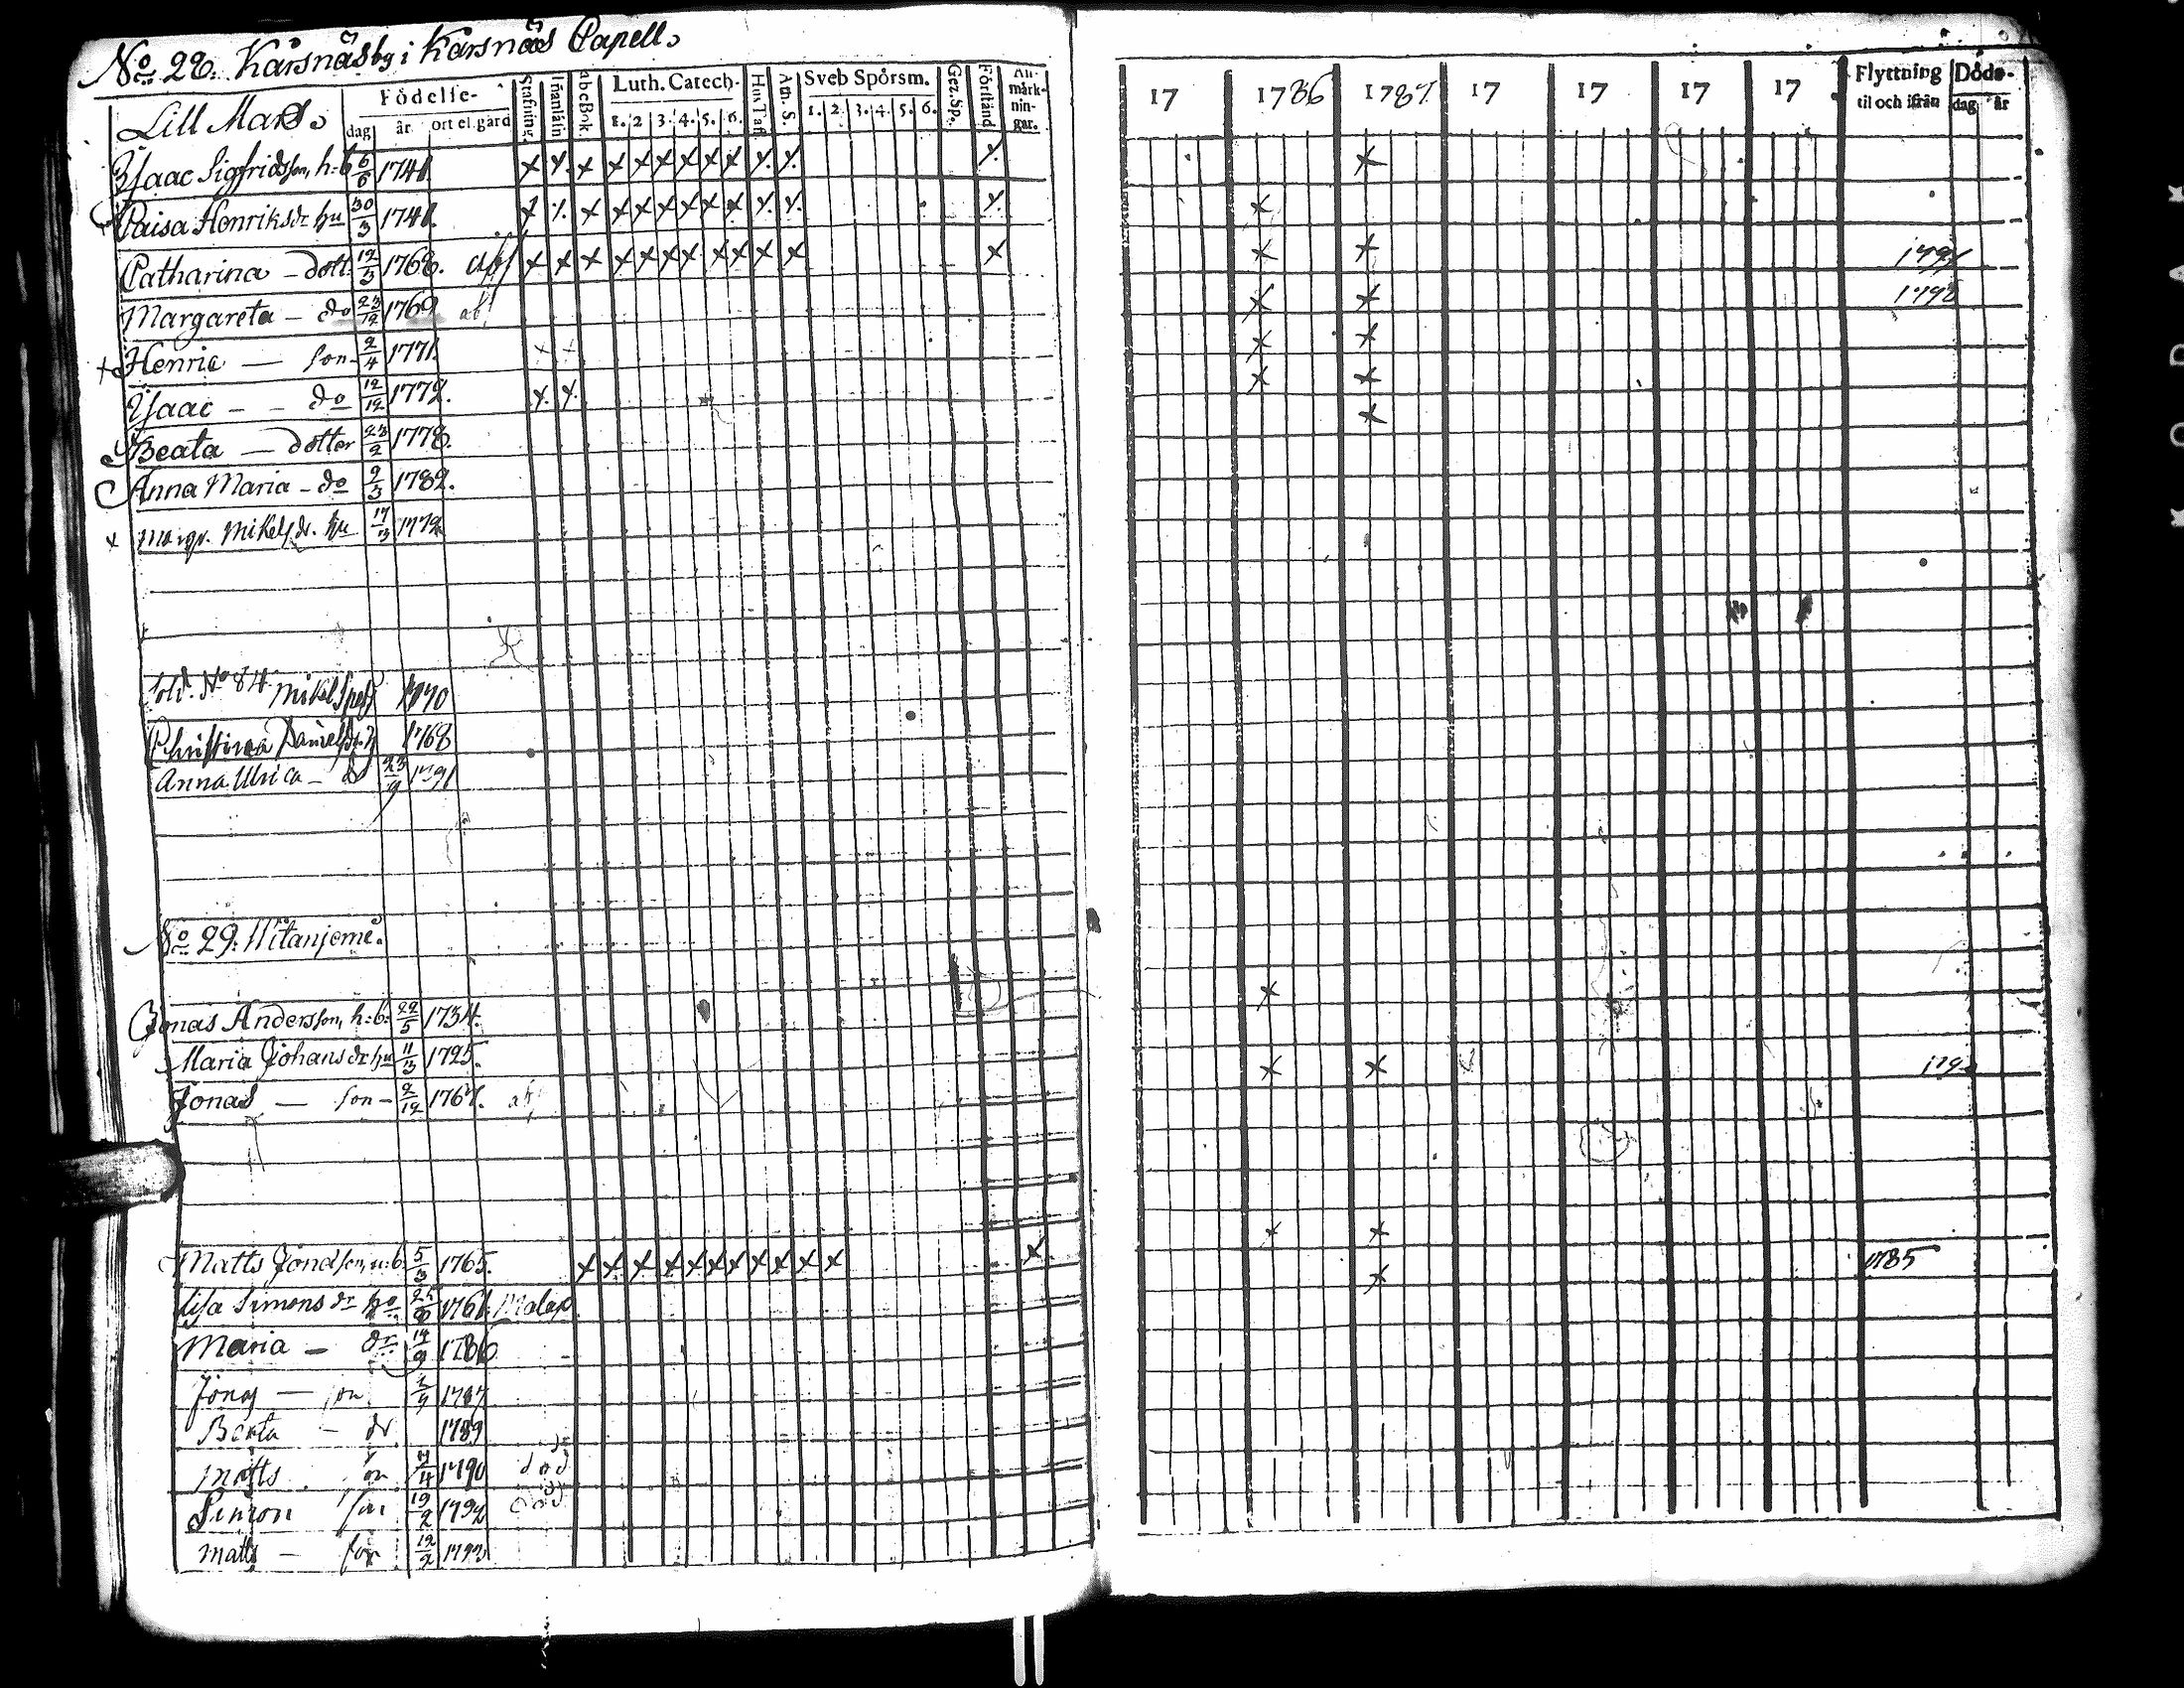 No 28. Kårsnäs by i Kårsnäs Capell.
Lill Mars.
Födelse-
dag år ort el. gård
Stafning Innanläsn abcBok Luth. Catech. 1. 2 3. 4. 5. 6. Hus Tafl Ath. S. Sveb Spörsm. 1. 2. 3. 4. 5. 6. Gez. Sp. Förstånd An-märk-nin-gar.
17 1786 1787 17 17 17 17 Flyttning til och ifrån Döds- dag år
Isaac Sigfridsson, h:b 6/6 1741. x x x x x x x x x x x x x
Caisa Henriksdr hu 30/3 1741. x x x x x x x x x x x x x
Catharina - dott. 12/3 1768. x x x x x x x x x x x x x x 1791
Margareta - do 23/12 1769 x x
x Henric - son - 2/4 1771. x x x x
Isaac - - do 12/12 1772. x x x x
Beata - dotter 23/2 1778. x
Anna Maria - do 9/3 1782.
x Margr. Mikelsdr. hu 17/3 1772
Sold. No 84. Mikel 1770
Christina Danielsdr 1768
Anna Ulrica - dr 23/9 1791
No 29. Witanjeme.
Jonas Andersson, h:b: 22/5 1734. x
Maria Johansdr hu 11/3 1725. x x
Jonas - son - 2/12 1767.
Matts Jonasson, u:b 5/3 1765. x x x x x x x x x x x x x x
Lisa Simonsdr hu 1761. Malax x 1785
Maria - dr 14/9 1786
Jonas - son 1787
Beata - dr 1789
Matts son 1790 död
Simon son 19/2 1792 död
Matts - son 12/2 1793